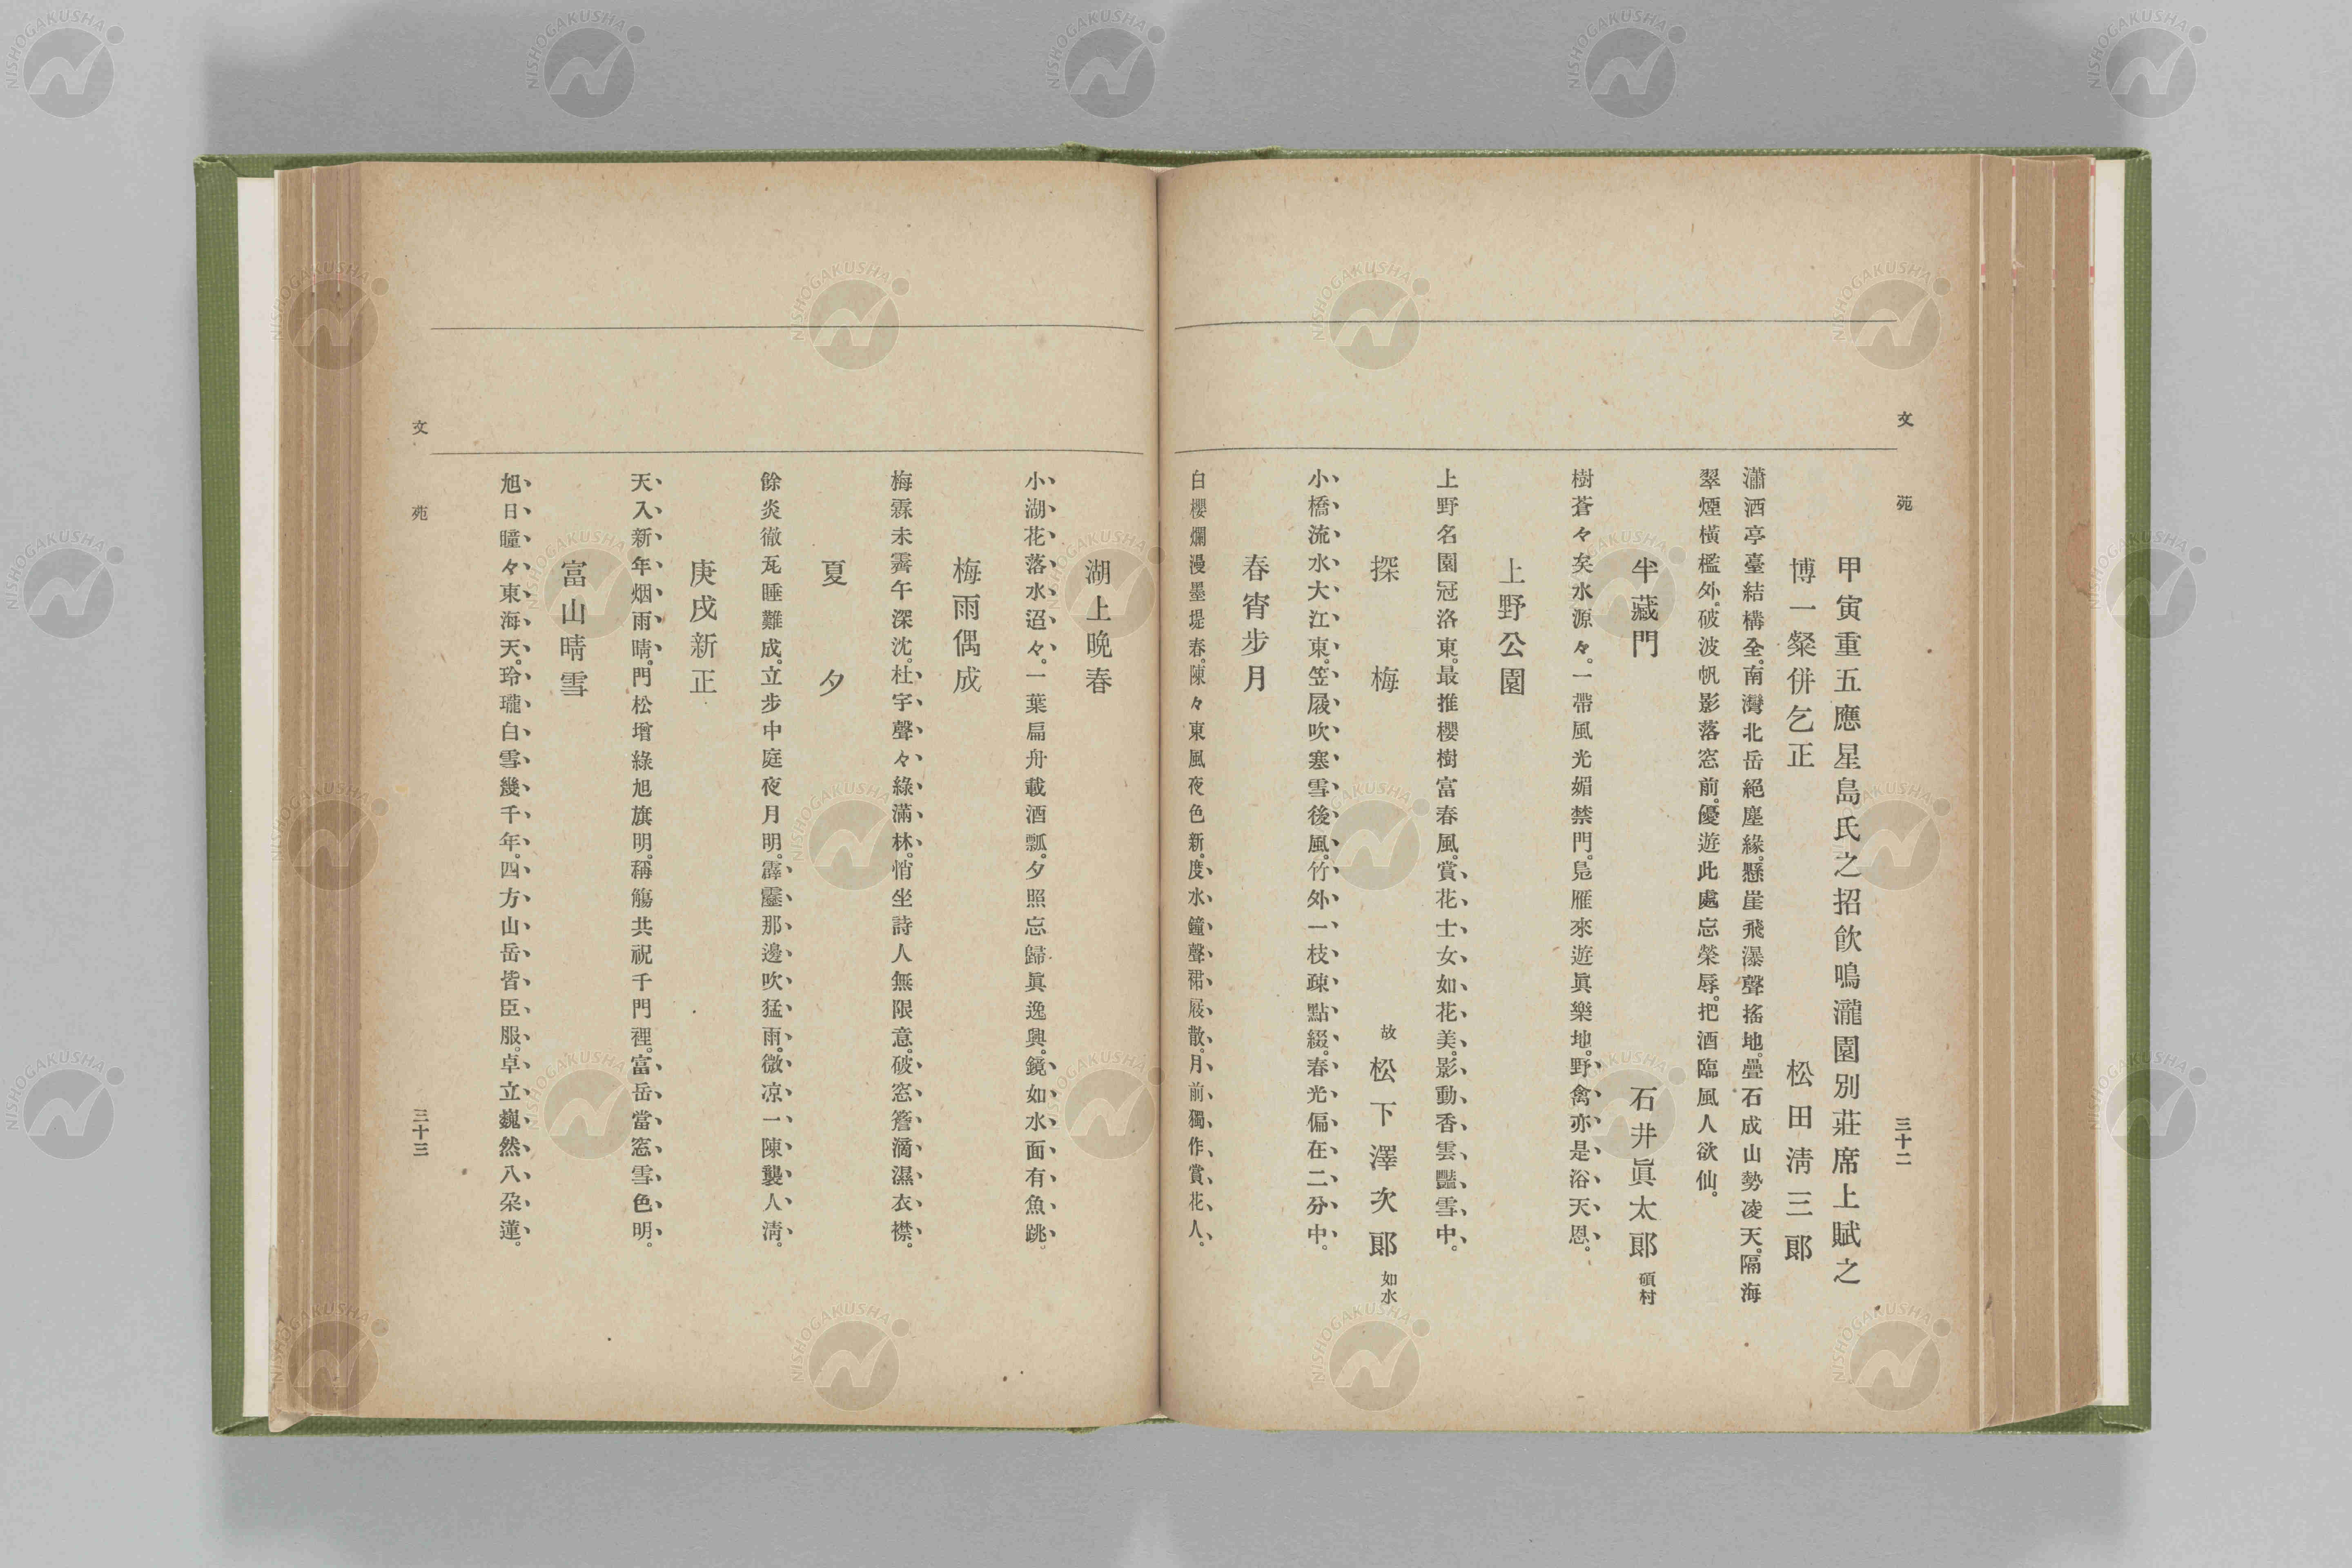 文苑 三十二
甲寅重五應星島氏之招飮鳴瀧園別莊席上賦之
博一粲併乞正 松田淸三郞
瀟洒亭臺結構全。南灣北岳絕塵緣。懸崖飛瀑聲搖地。疊石成山勢凌天。隔海
翠煙橫檻外。破波帆影落窓前。優遊此處忘榮辱。把酒臨風人欲仙。
半藏門 石井眞太郞 碩村
樹蒼々矣水源々。一帶風光媚禁門。鳧雁來遊眞樂地。野禽亦是浴天恩。
上野公園
上野名園冠洛東。最推櫻樹富春風。賞花士女如花美。影動香雲豔雪中。
探梅 故 松下澤次郞 如水
小橋流水大江東。笠屐吹塞雪後風。竹外一枝疎點綴。春光偏在二分中。
春宵步月
白櫻爛漫墨堤春。陳々東風夜色新。度水鐘聲裙屐散。月前獨作賞花人。
湖上晚春
小湖花落水迢々。一葉扁舟載酒瓢。夕照忘歸眞逸興。鏡如水面有魚跳。
梅雨偶成
梅霖未霽午深沈。杜宇聲々綠滿林。悄坐詩人無限意。破窓簷滴濕衣襟。
夏夕
餘炎徹瓦睡難成。立步中庭夜月明。霹靂那邊吹猛雨。微凉一陳襲人淸。
庚戌新正
天入新年烟雨晴。門松增綠旭旗明。稱觴共祝千門裡。富岳當窓雪色明。
富山晴雪
旭日曈々東海天。玲瓏白雪幾千年。四方山岳皆臣服。卓立巍然八朶蓮。
文苑 三十三
NISHOGAKUSHA